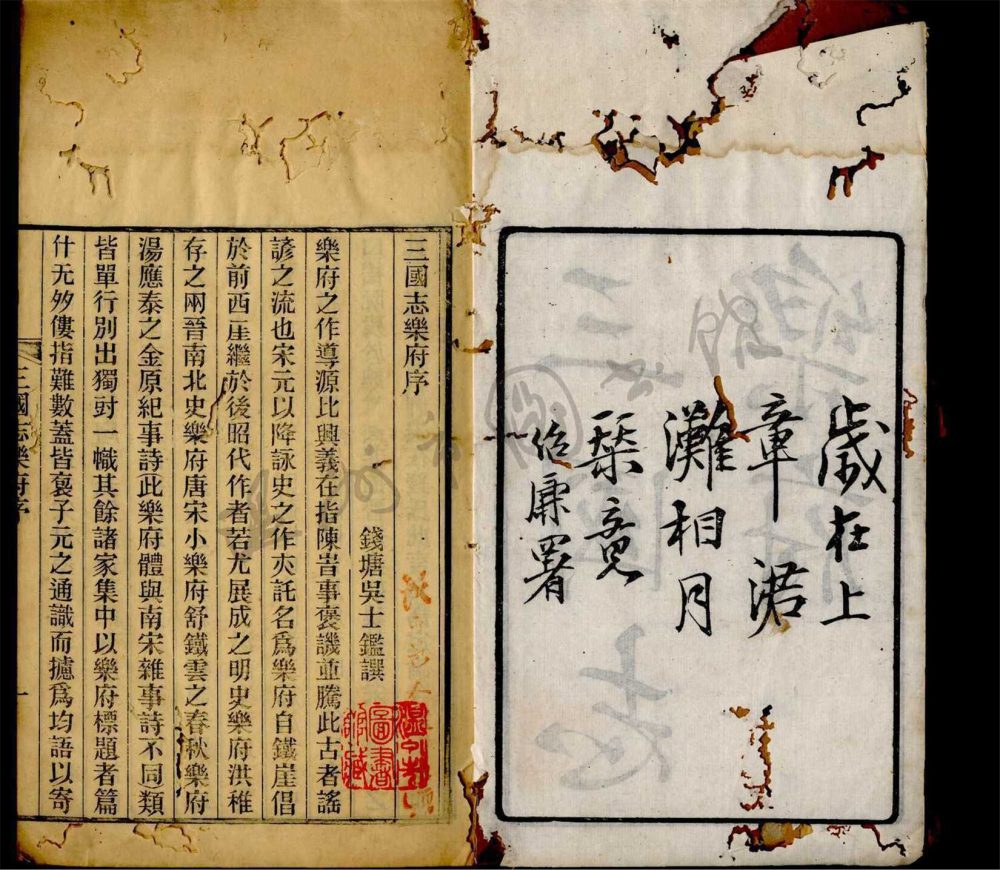 歲在上
章涒
灘相月
栞竟
伯廉署
三國志樂府序
錢塘吳士鑑譔
樂府之作導源比興義在指陳峕事褒譏並騰此古者謠
諺之流也宋元以降詠史之作亦託名爲樂府自鐵崖倡
於前西崖繼於後昭代作者若尤展成之明史樂府洪稚
存之兩晉南北史樂府唐宋小樂府舒鐵雲之春秋樂府
湯應泰之金原紀事詩此樂府體與南宋雜事詩不同類
皆單行別出獨尌一幟其餘諸家集中以樂府標題者篇
什僂指難數蓋皆褱子元之通識而攄爲均語以寄
三國志樂府序
一
圖書
館藏